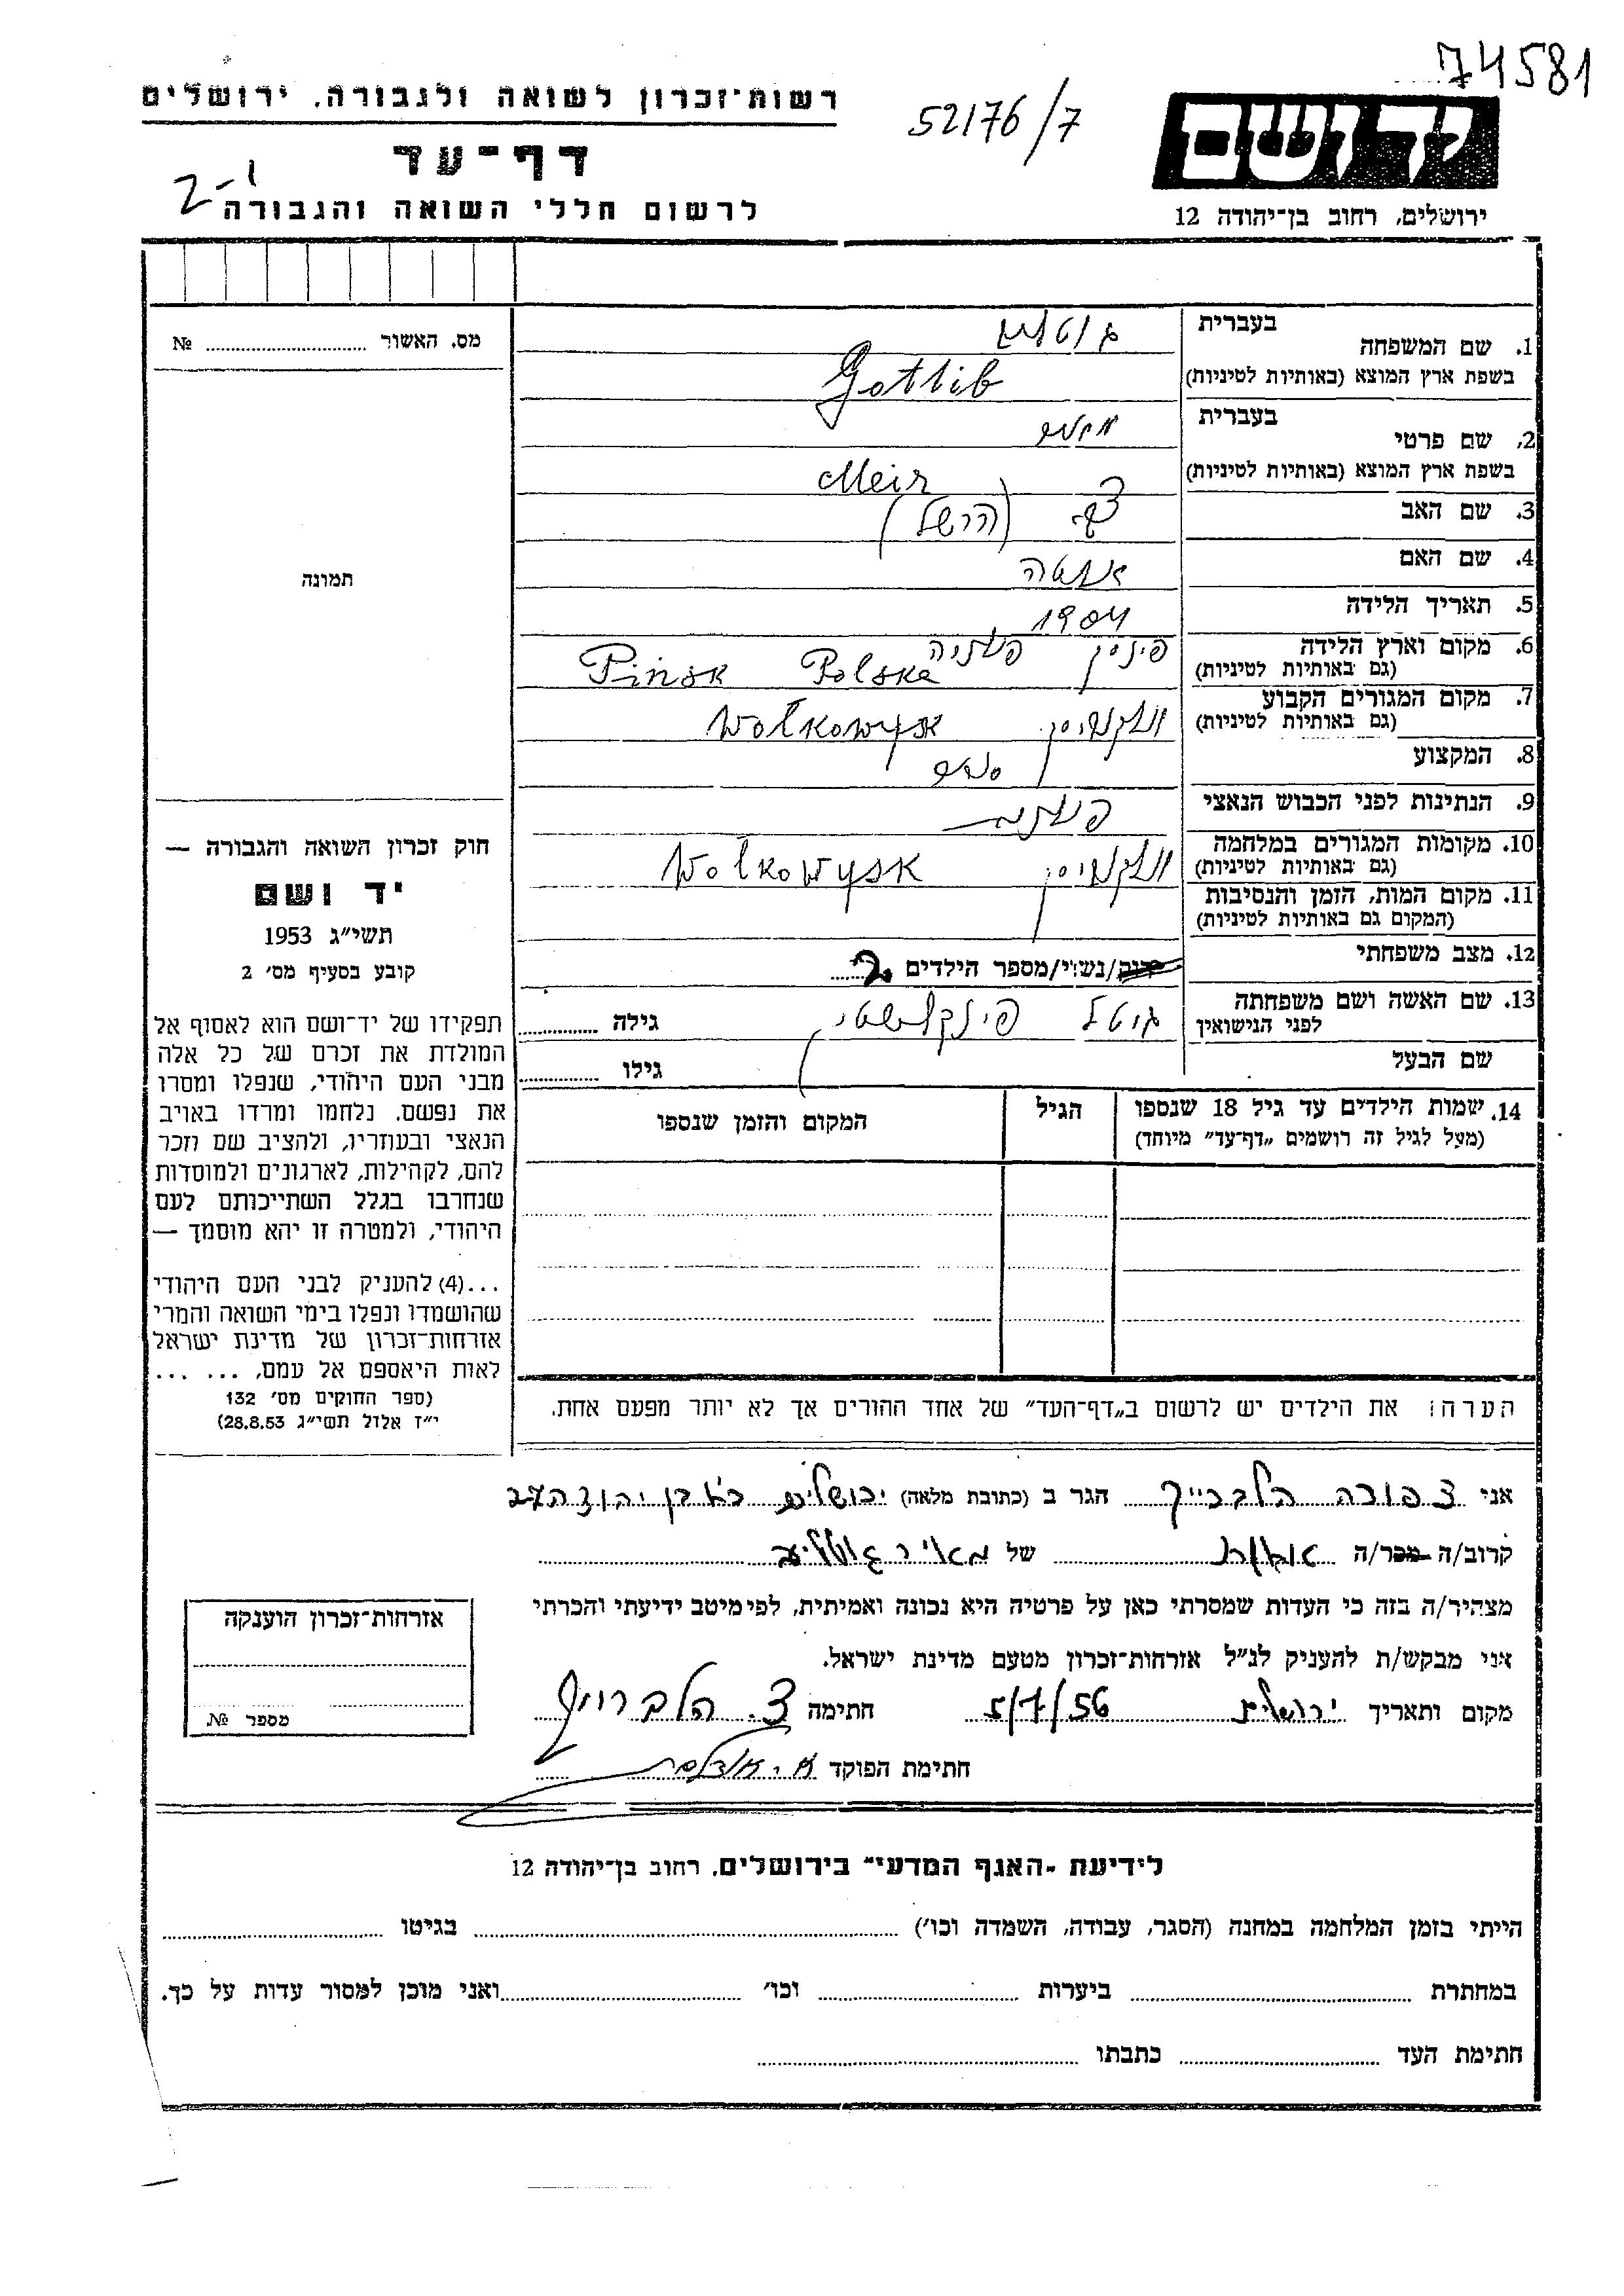 74581
52176/7
רשות־זכרון לשואה ולגבורה, ירושלים
דף־עד
לרשום חללי השואה והגבורה
ידושם
ירושלים, רחוב בן־יהודה 12
מס. האשור ... №
תמונה
בעברית
1. שם המשפחה
גוטליב
בשפת ארץ המוצא (באותיות לטיניות)
Gotlib
בעברית
2. שם פרטי
בשפת ארץ המוצא (באותיות לטיניות)
Meir
3. שם האב
צבי (הרשל)
4. שם האם
5. תאריך הלידה
1904
6. מקום וארץ הלידה
(גם באותיות לטיניות)
פינסק פולניה
Pińsk Polska
7. מקום המגורים הקבוע
(גם באותיות לטיניות)
Wołkowysk
8. המקצוע
9. הנתינות לפני הכבוש הנאצי
פולנית
10. מקומות המגורים במלחמה
(גם באותיות לטיניות)
Wołkowysk
11. מקום המות, הזמן והנסיבות
(המקום גם באותיות לטיניות)
12. מצב משפחתי
רווק/נשוי/מספר הילדים 2
13. שם האשה ושם משפחתה
לפני הנישואין
גיטל
גילה
שם הבעל
גילו
14. שמות הילדים עד גיל 18 שנספו
(מעל לגיל זה רושמים „דף־עד” מיוחד)
הגיל
המקום והזמן שנספו
חוק זכרון השואה והגבורה —
יד ושם
תשי״ג 1953
קובע בסעיף מס׳ 2
תפקידו של יד־ושם הוא לאסוף אל
המולדת את זכרם של כל אלה
מבני העם היהודי, שנפלו ומסרו
את נפשם. נלחמו ומרדו באויב
הנאצי ובעוזריו, ולהציב שם וזכר
להם, לקהילות, לארגונים ולמוסדות
שנחרבו בגלל השתייכותם לעם
היהודי, ולמטרה זו יהא מוסמך —
...(4) להעניק לבני העם היהודי
שהושמדו ונפלו בימי השואה והמרי
אזרחות־זכרון של מדינת ישראל
לאות היאספם אל עמם, ... ...
(ספר החוקים מס׳ 132
י״ז אלול תשי״ג 28.8.53)
הערה: את הילדים יש לרשום ב„דף־העד” של אחד ההורים אך לא יותר מפעם אחת.
אני צפורה הלברייך הגר ב (כתובת מלאה) ירושלים בן יהודה
קרוב/ה מכר/ה אחות של מאיר גוטליב
מצהיר/ה בזה כי העדות שמסרתי כאן על פרטיה היא נכונה ואמיתית, לפי מיטב ידיעתי והכרתי
אני מבקש/ת להעניק לנ״ל אזרחות־זכרון מטעם מדינת ישראל.
מקום ותאריך ירושלים 5/7/56 חתימה צ. הלברייך
חתימת הפוקד
אזרחות־זכרון הוענקה
מספר №
לידיעת ״האגף המדעי״ בירושלים, רחוב בן־יהודה 12
הייתי בזמן המלחמה במחנה (הסגר, עבודה, השמדה וכו׳) בגיטו
במחתרת ביערות וכו׳ ואני מוכן למסור עדות על כך.
חתימת העד כתבתו